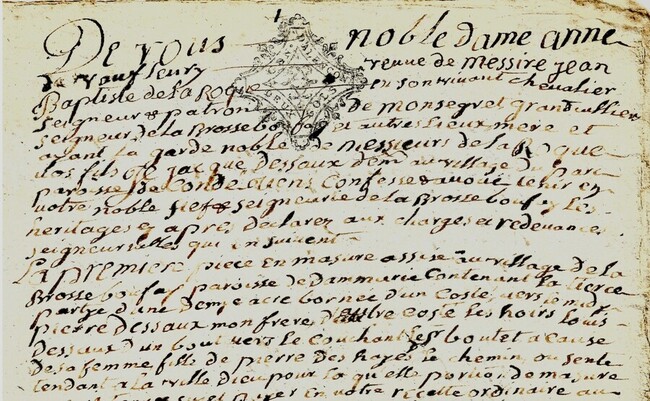 De vous noble dame anne
le vavasseur veuve de messire jean
Baptiste de la Roque en son vivant chevalier
seigneur & patron de monsegret grand
seigneur de la Brosse et autres lieux mere et
ayant la garde noble de messieurs de la Roque
dos fils je jacque dessaux dem au village du parc
paroisse de Condé confesse & avoüe tenir en
votre noble fief & seigneurie de la Brosse les
heritages cy apres declarez aux charges et redevances
seigneurialles qui en suivent
La premiere piece en masure assise au village de la
Brosse paroisse de Dammarie contenant la tierce
partye d'une demye acre bornee d'un costé vers le midy
pierre dessaux mon frere d'autre costé les hoirs louis
dessaux d'un bout vers le couchant boutet a cause
de sa femme fille de pierre des hayes le chemin ou sente
tendant a la ville dieu pour laquelle portion de masure
en votre recette ordinaire au